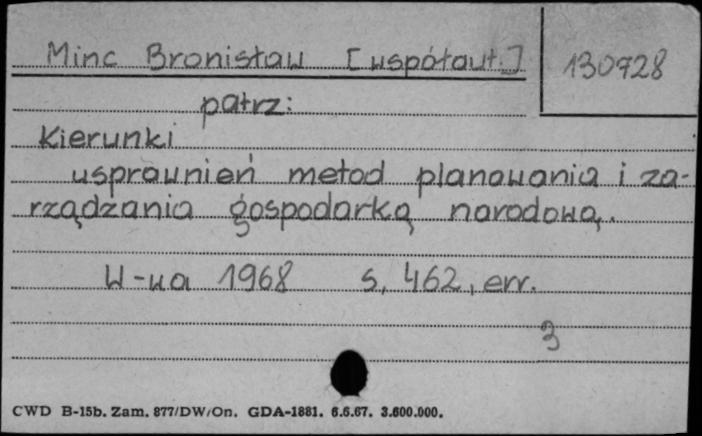 Minc Bronisław [współaut.]
130928
patrz:
Kierunki
usprawnień metod planowania i za-
rządzania gospodarką narodową.
W-wa 1968 s, 462, err.
3
CWD B-15b. Zam. 877/DW/On. GDA-1881. 6.6.67. 3.600.000.